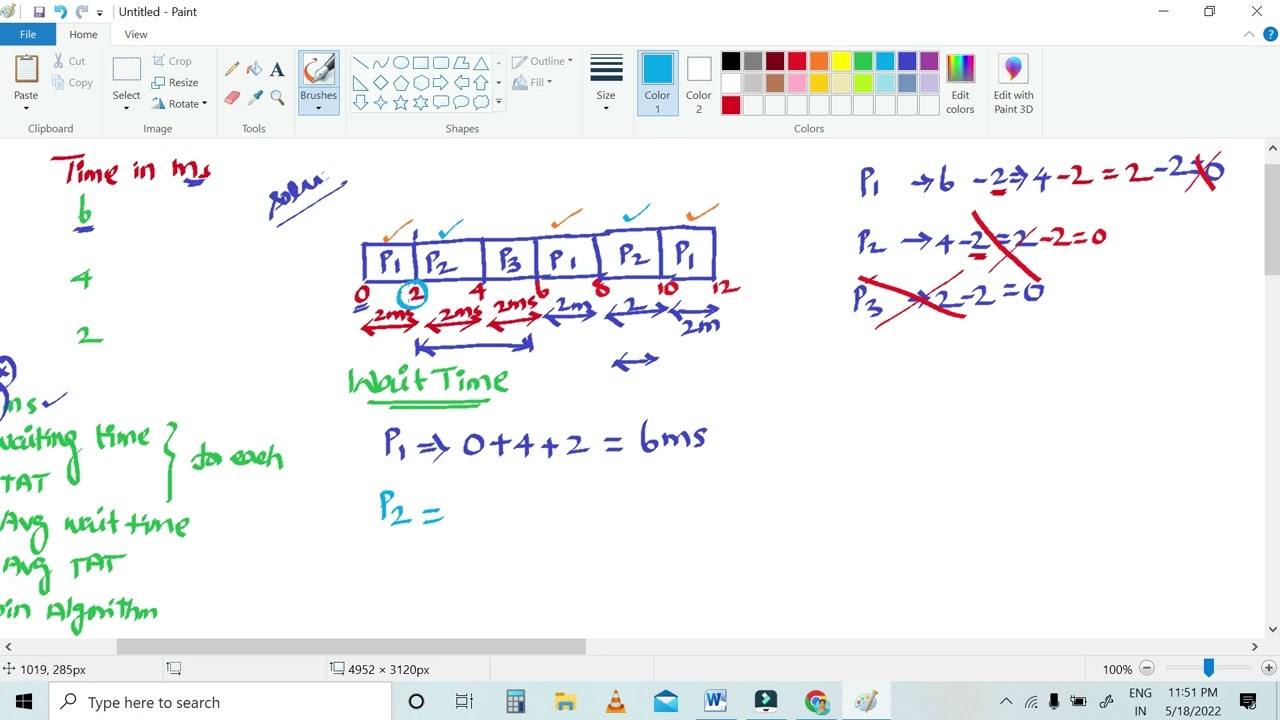 Untitled - Paint
File Home View
Paste Cut Copy Clipboard
Select Crop Resize Rotate Image
Tools
Brushes
Outline Fill Shapes
Size
Color 1
Color 2
Edit colors
Colors
Edit with Paint 3D
Time in ms
6
4
2
ms
waiting time
TAT
for each
Avg wait time
Avg TAT
Algorithm
P1 P2 P3 P1 P2 P1
0 2 4 6 8 10 12
2ms 2ms 2ms 2m 2 2m
Wait Time
P1 ⇒ 0+4+2 = 6ms
P2 =
P1 → 6 -2 ⇒ 4 -2 = 2 -2 = 0
P2 → 4 -2 = 2 -2 = 0
P3 → 2 -2 = 0
1019, 285px
4952 × 3120px
100%
Type here to search
ENG IN
11:51 PM
5/18/2022